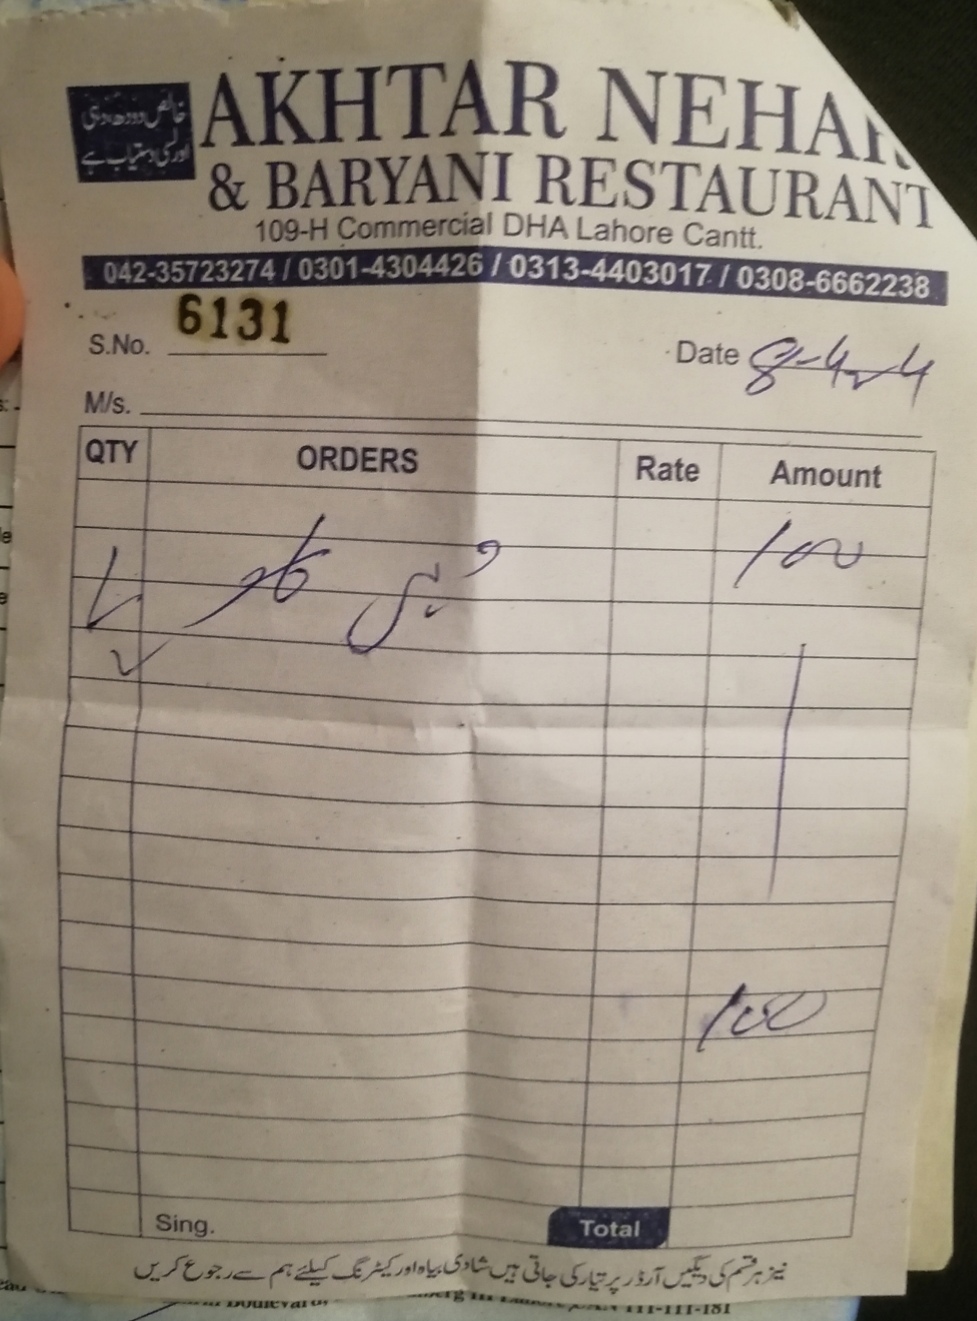 خالص دودھ دہی
اور لسی دستیاب ہے
AKHTAR NEHAR
& BARYANI RESTAURANT
109-H Commercial DHA Lahore Cantt.
042-35723274 / 0301-4304426 / 0313-4403017 / 0308-6662238
S.No. 6131
Date 8-4-4
M/s.
QTY ORDERS Rate Amount
100
100
Sing. Total
نیز ہر قسم کی دیگیں آرڈر پر تیار کی جاتی ہیں شادی بیاہ اور کیٹرنگ کیلئے ہم سے رجوع کریں
111-111-181